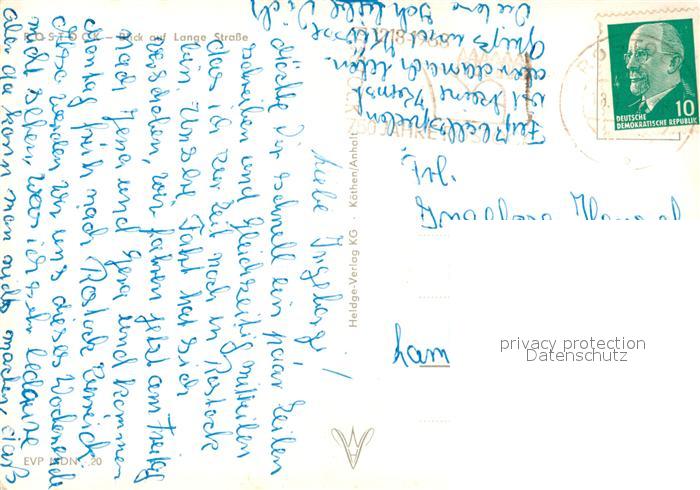 ROSTOCK – Blick auf Lange Straße
Liebe Ingeborg!
Möchte Dir schnell ein paar Zeilen
schreiben und gleichzeitig mitteilen
das ich zur Zeit noch in Rostock
bin. Unsere Fahrt hat sich
verschoben, wir fahren jetzt am Freitag
nach Jena und Gera und kommen
Montag früh nach Rostock zurück.
Also werden wir uns dieses Wochenende
nicht sehen, was ich sehr bedaure
aber da kann man nichts machen, daß
Fußballspielen
ist keine
aber dennoch
Gruß und Küsse
Ich liebe Dich
EVP MDN -.20
Heldge-Verlag KG · Köthen/Anhalt
JAHRE
10
DEUTSCHE
DEMOKRATISCHE REPUBLIK
Frl.
Ham
privacy protection
Datenschutz